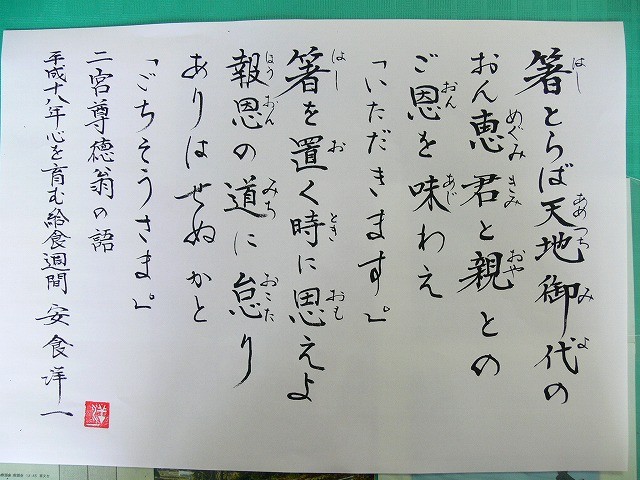 箸とらば天地御代の
はし あめつち みよ
おん恵君と親との
めぐみ きみ おや
ご恩を味わえ
おん あじ
「いただきます。」
箸を置く時に思えよ
はし お とき おも
報恩の道に怠り
ほうおん みち おこた
ありはせぬかと
「ごちそうさま。」
二宮尊徳翁の語
平成十八年心を育む給食週間 安食洋一
洋